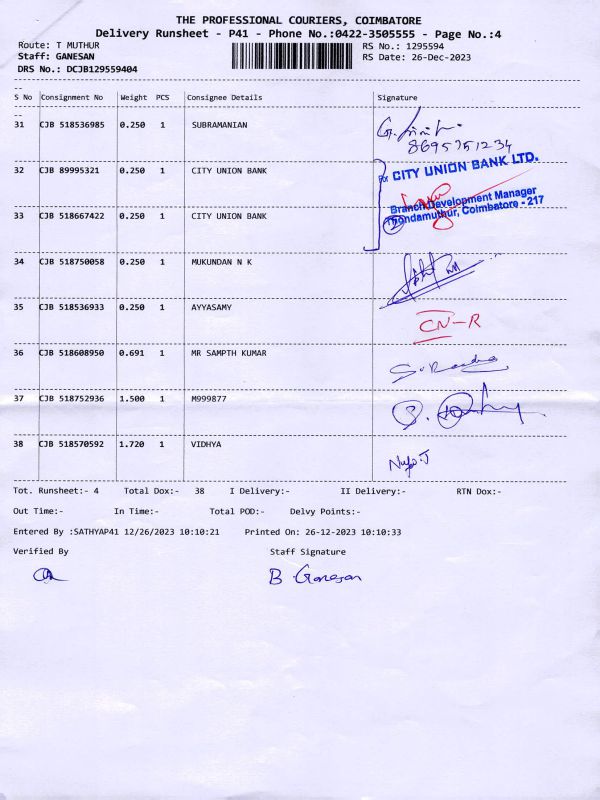 THE PROFESSIONAL COURIERS, COIMBATORE
Delivery Runsheet - P41 - Phone No.:0422-3505555 - Page No.:4
Route: T MUTHUR RS No.: 1295594
Staff: GANESAN RS Date: 26-Dec-2023
DRS No.: DCJB129559404
S No Consignment No Weight PCS Consignee Details Signature
31 CJB 518536985 0.250 1 SUBRAMANIAN
8695751234
32 CJB 89995321 0.250 1 CITY UNION BANK
For CITY UNION BANK LTD.
Branch Development Manager
Thondamuthur, Coimbatore - 217
33 CJB 518667422 0.250 1 CITY UNION BANK
2
34 CJB 518750058 0.250 1 MUKUNDAN N K
35 CJB 518536933 0.250 1 AYYASAMY
CN-R
36 CJB 518608950 0.691 1 MR SAMPTH KUMAR
37 CJB 518752936 1.500 1 M999877
38 CJB 518570592 1.720 1 VIDHYA
Tot. Runsheet:- 4 Total Dox:- 38 I Delivery:- II Delivery:- RTN Dox:-
Out Time:- In Time:- Total POD:- Delvy Points:-
Entered By :SATHYAP41 12/26/2023 10:10:21 Printed On: 26-12-2023 10:10:33
Verified By Staff Signature
B Ganesan